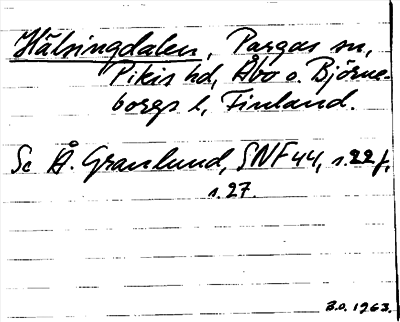 Hälsingdalen, Pargas sn,
Pikis hd, Åbo o. Björne-
borgs l, Finland.
Se Å. Granlund, SNF 44, s. 22 f,
s. 27.
B.O. 1963.